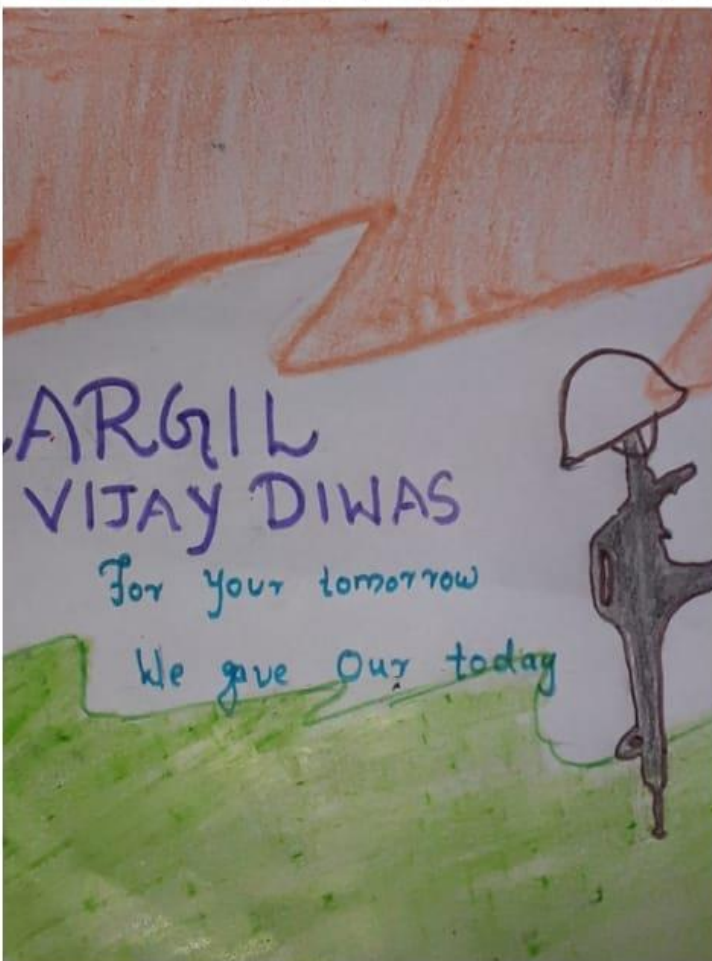 ARGIL
VIJAY DIWAS
For your tomorrow
We gave Our today